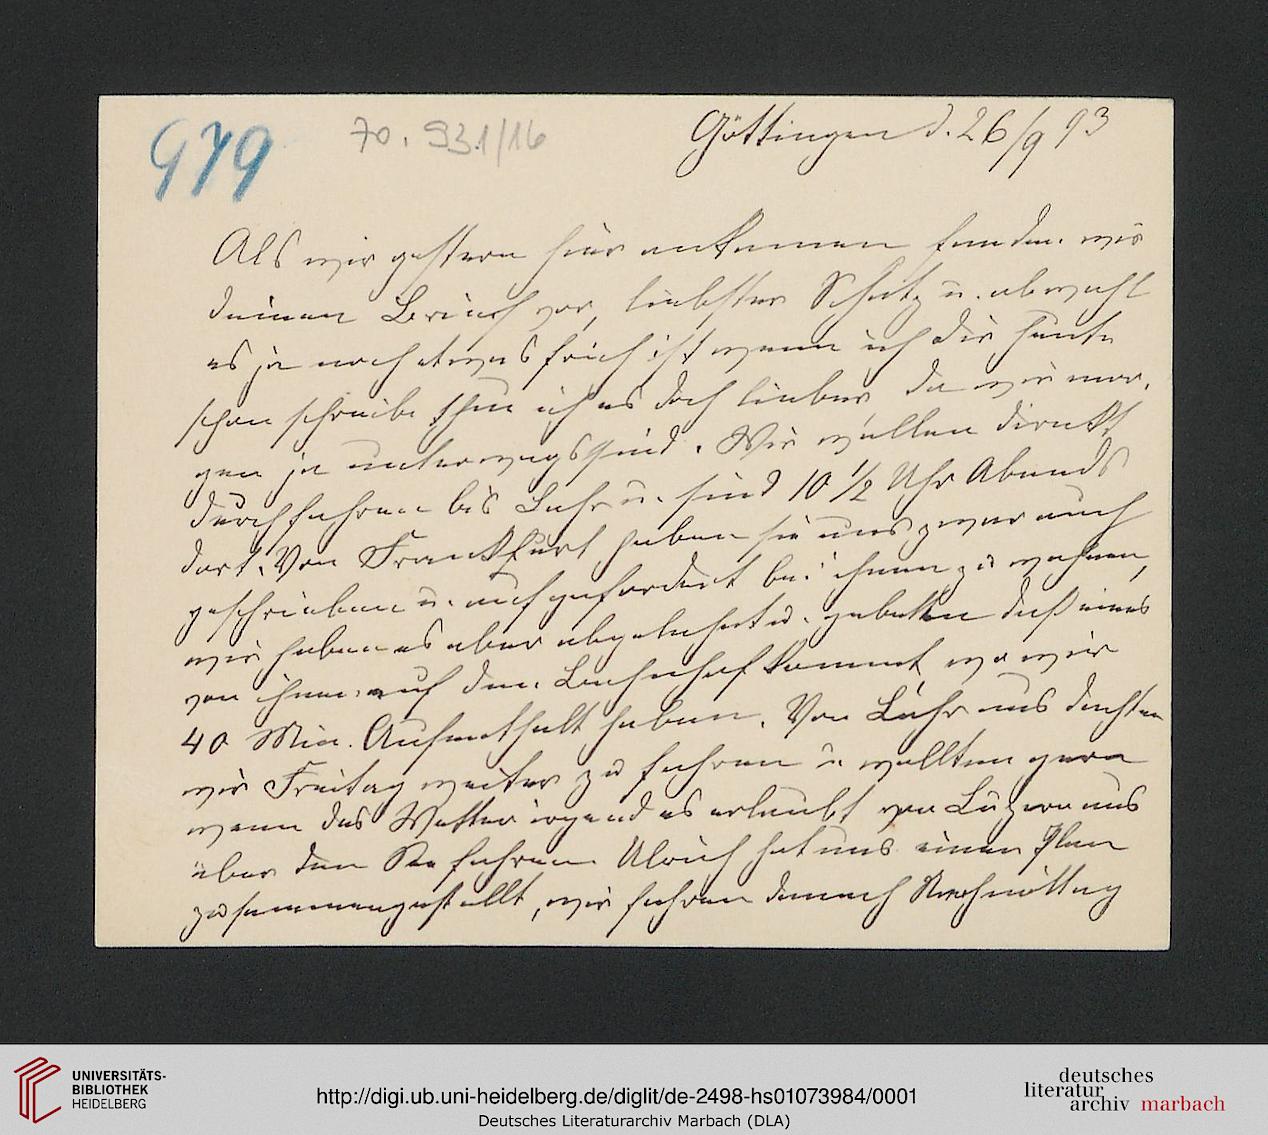 979
70.931/16
Göttingen d. 26/9 93
Als wir gestern hier ankamen fanden wir
deinen Brief vor, liebster Schatz u. obwohl
es ja noch etwas früh ist wenn ich dir heute
schon schreibe thue ich es doch lieber da wir mor-
gen ja unterwegs sind. Wir wollen direkt
durchfahren bis Lahr u. sind 10 1/2 Uhr Abends
dort. Von Frankfurt haben sie uns zwar auch
geschrieben u. aufgefordert bei ihnen zu wohnen,
wir haben es aber abgelehnt u. gebeten daß eines
von ihnen auf den Bahnhof kommt, wo wir
40 Min. Aufenthalt haben. Von Lahr aus dachten
wir Freitag weiter zu fahren u. wollten gern
wenn das Wetter irgend es erlaubt von Luzern aus
über den See fahren Ulrich hat uns einen Plan
zusammengestellt, wir fahren danach Nachmittag
UNIVERSITÄTS-
BIBLIOTHEK
HEIDELBERG
http://digi.ub.uni-heidelberg.de/diglit/de-2498-hs01073984/0001
Deutsches Literaturarchiv Marbach (DLA)
deutsches
literatur
archiv marbach